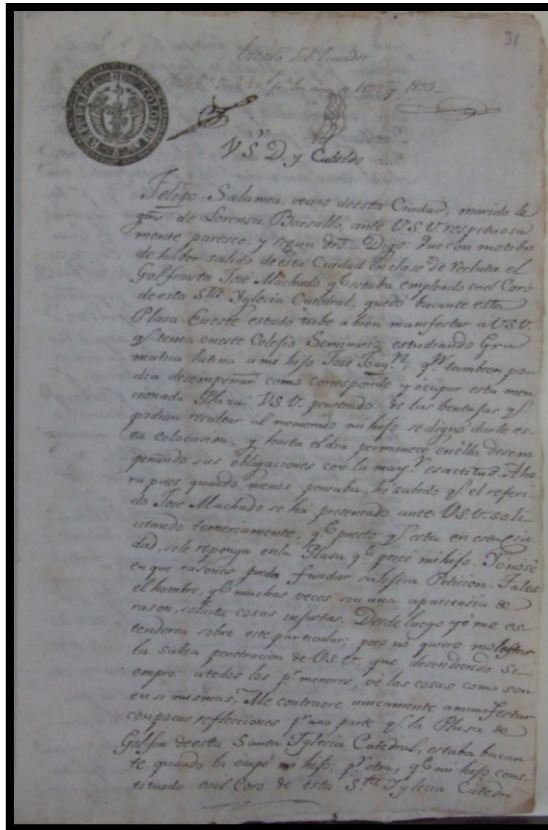 31
Estado del Ecuador
REPUBLICA DE COLOMBIA
V.S. D. y Cabildo
Felipe Salamea, vecino de esta Ciudad, marido le
gmo. de Lorensa Barsallo, ante V.S.V. respetuosa
mente paresco, y segun dro. Digo: Que con motibo
de haber salido de esta Ciudad en clase de recluta el
Golfinista José Machado q. estaba empleado en el Coro
de esta Sta. Yglecia Catedral, quedó bacante esta
Plasa. En este estado tube a bien manifestar a V.S.V.
qe. tenia en este Colesio Seminario estudiando Gra
matica latina a mi hijo José Joaqn., qe. tambien po
dia desempeñar como corresponde y ocupar esta men
cionada Plaza: V.S.V. penetrado de las bentajas qe.
podian resultar al mencndo. mi hijo se dignó darle es
ta colocasion, y hasta el dia permanece en ella desem
peñando sus obligaciones con la mayr. esactitud. Aho
ra pues quando menos pensaba, he sabido qe. el referi
do José Machado se ha presentado ante V.S.V. soli
citando temerariamente, qe. puesto qe. esta en esta ciu
dad, se le reponga en la Plasa qe. poseé mi hijo. Yo no sé
en que rasones pueda fundar su Petición. Tal es
el hombre, qe. muchas veces sin una apariensia de
rason, solicita cosas injustas. Desde luego yo me es
tenderia sobre este particular; pero no quiero molestar
la sabia penetracion de V.S.V., que desendiendo si
empre a todos los pr. menores, vé las cosas como son
en si mismas. Me contraere unicamente a manifestar
con pocas reflecciones pr. una parte qe. la Plasa de
Golfin de esta Santa Yglesia Catedral, estaba bacan
te quando la ocupó mi hijo; pr. otra, qe. mi hijo cons
tituido en el Coro de esta Sta. Yglecia Catedra